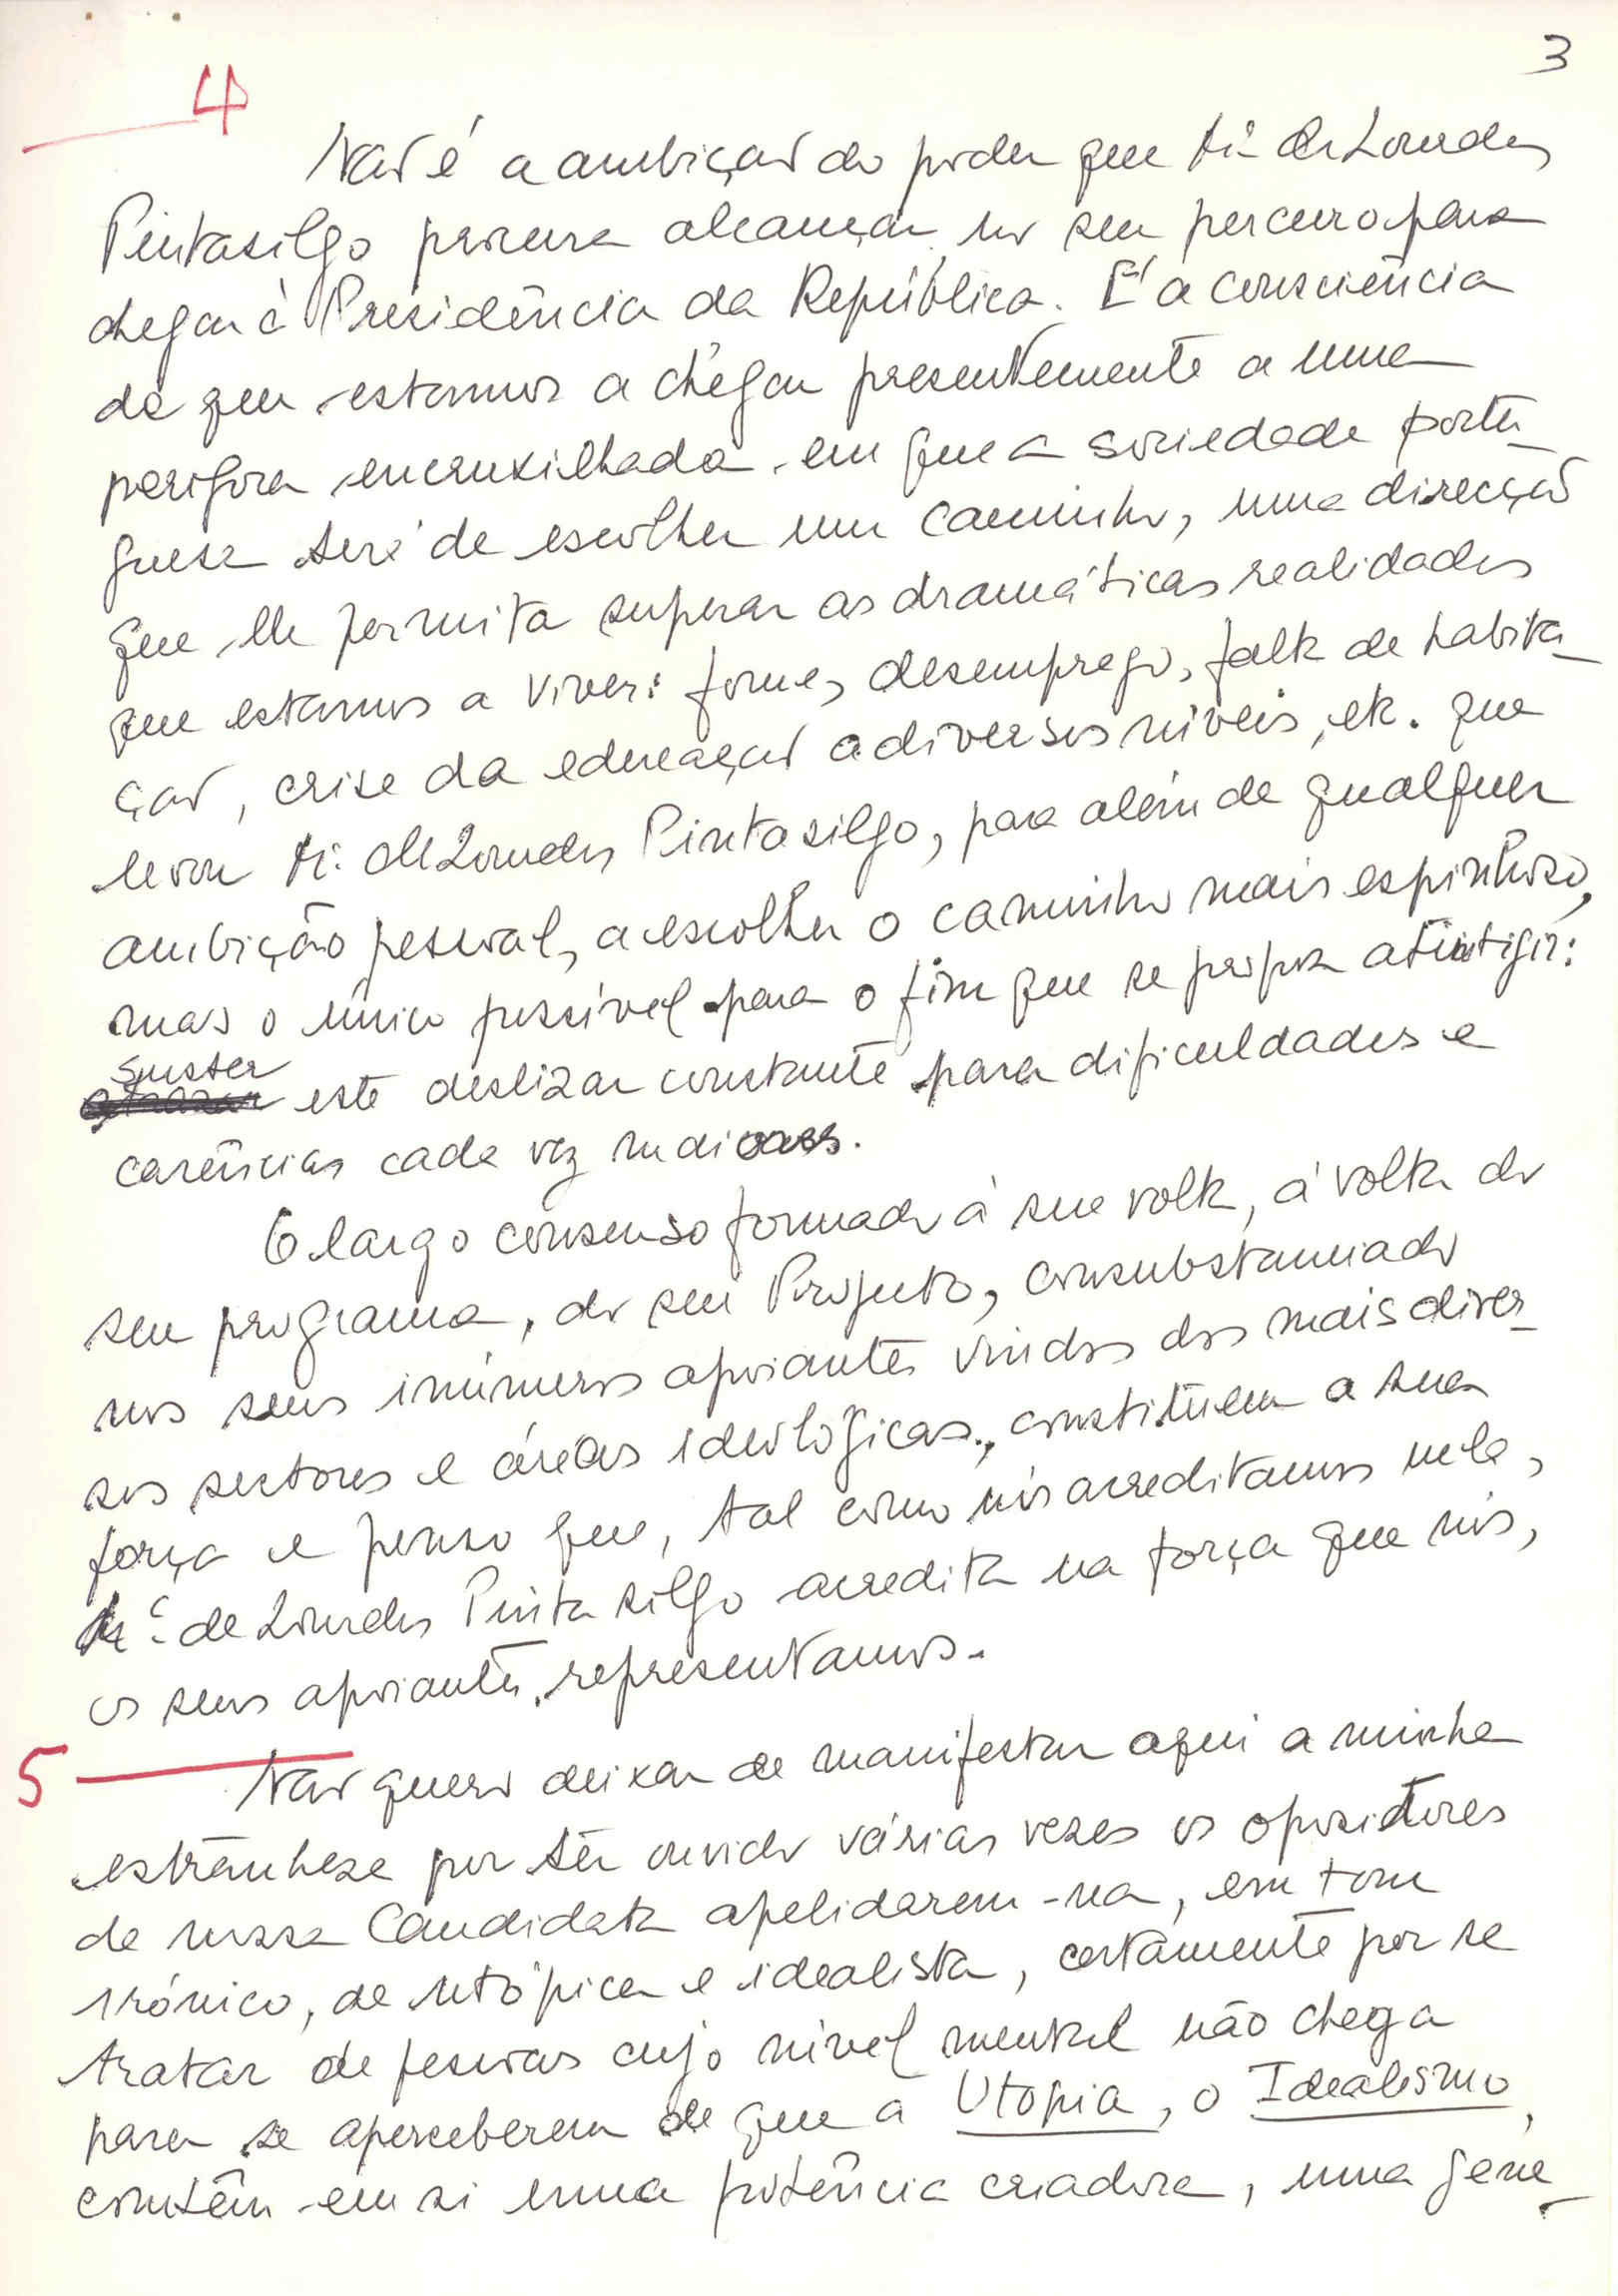 3
4
Não é a ambição do poder que M.ª de Lourdes
Pintasilgo procura alcançar no seu percurso para
chegar à Presidência da República. É a consciência
de que estamos a chegar presentemente a uma
perigosa encruzilhada em que a sociedade portu-
guesa terá de escolher um caminho, uma direcção
que lhe permita superar as dramáticas realidades
que estamos a viver: fome, desemprego, falta de habita-
ção, crise da educação a diversos níveis, etc. que
levou M.ª de Lourdes Pintasilgo, para além de qualquer
ambição pessoal, a escolher o caminho mais espinhoso,
mas o único possível para o fim que se propõe atingir:
suster
este deslizar constante para dificuldades e
carências cada vez maiores.
O largo consenso formado à sua volta, à volta do
seu programa, do seu Projecto, consubstanciado
nos seus inúmeros apoiantes vindos dos mais diver-
sos sectores e áreas ideológicas, constituem a sua
força e penso que, tal como nós acreditamos nela,
M.ª de Lourdes Pintasilgo acredita na força que nós,
os seus apoiantes, representamos.
5
Não quero deixar de manifestar aqui a minha
estranheza por ter ouvido várias vezes os opositores
da nossa Candidata apelidarem-na, em tom
irónico, de utópica e idealista, certamente por se
tratar de pessoas cujo nível mental não chega
para se aperceberem de que a Utopia, o Idealismo,
contêm em si uma potência criadora, uma gene-